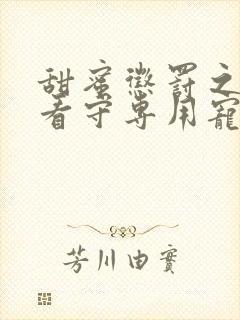 甜蜜懲罰之
看守專用寵
芳川由實